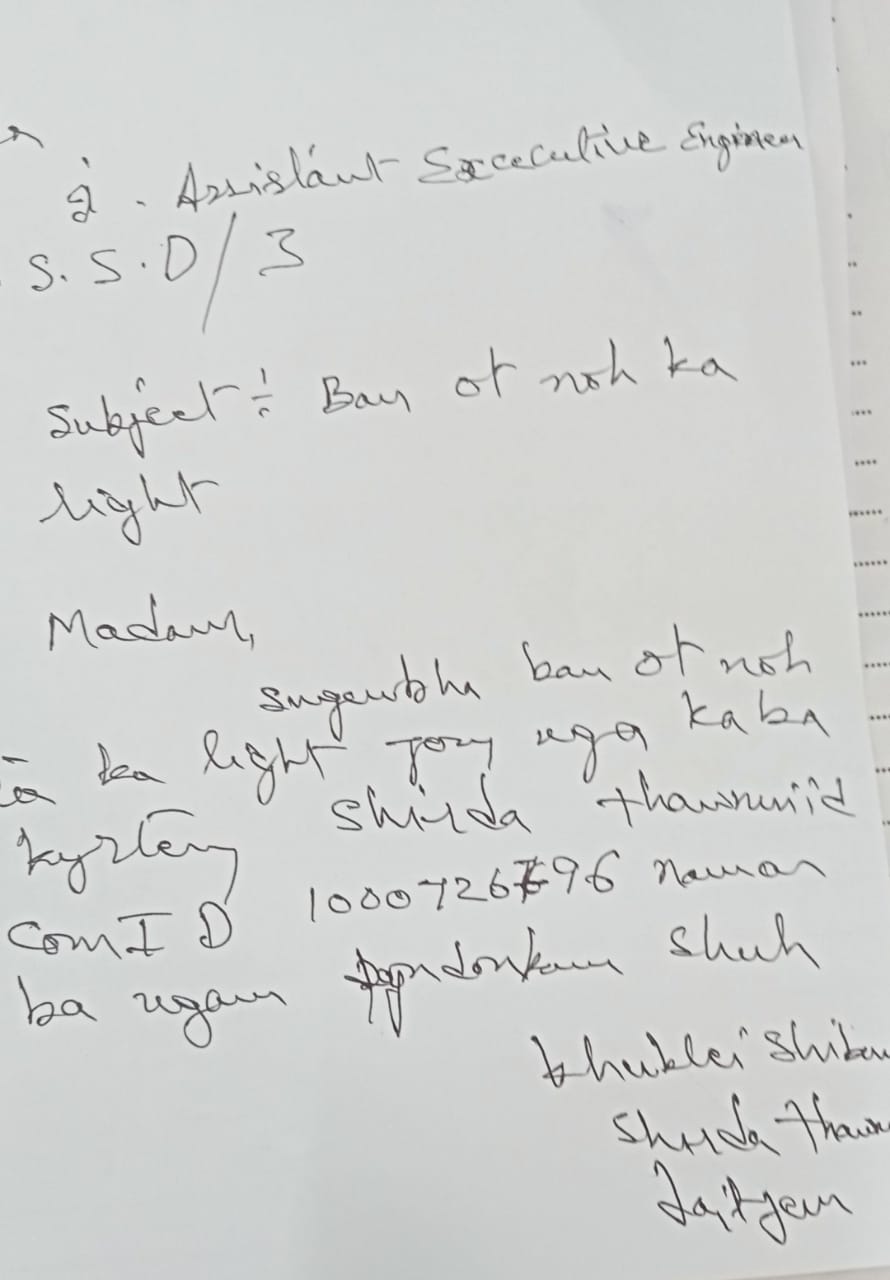 2. Assistant Excecutive Engineer
S.S.D/3
Subject ÷ Ban ot noh ka
light
Madam,
Sngewbha ban ot noh
ïa ka light jong nga kaba
kyrteng Shirda thawmiid
Com I D 1000726696 namar
ba ngam pyndonkam shuh
Khublei Shibun
Shirda
Laitjem